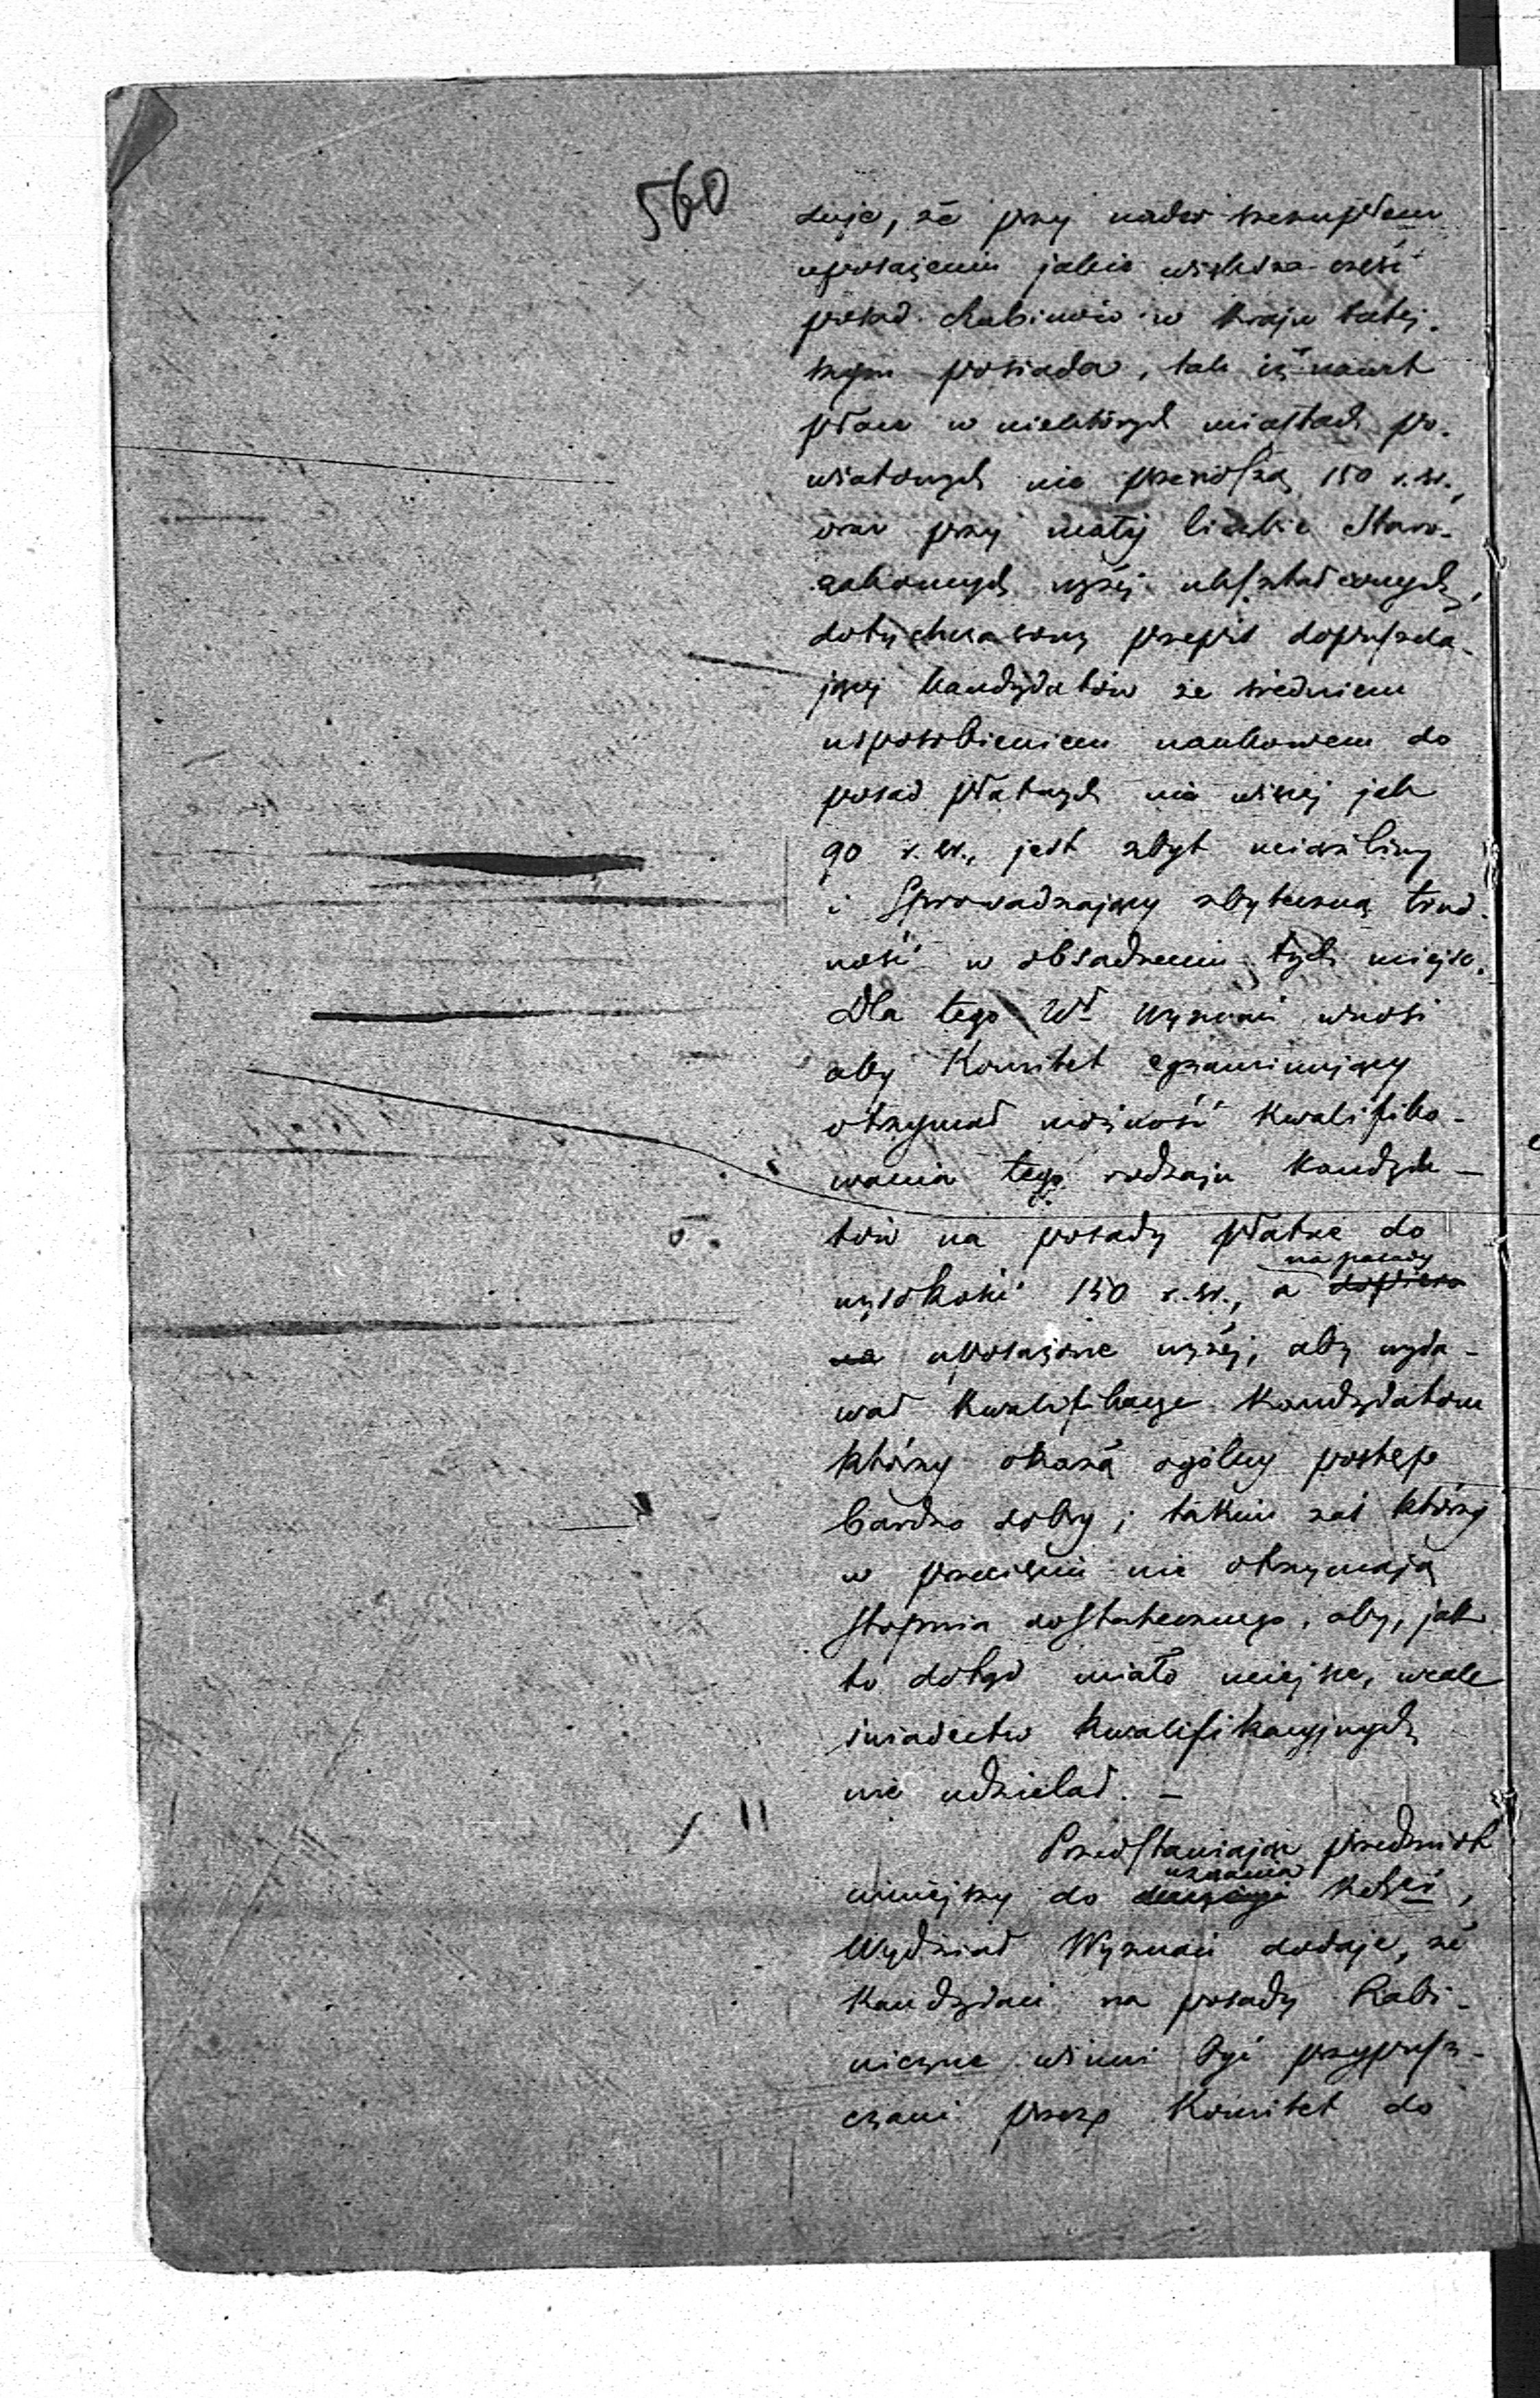 560
duje, że przy nader szczupłem
uposażeniu jakie większa część
posad Rabinów w kraju tutej-
szym posiada, tak iż nawet
płace w niektórych miastach po-
wiatowych nie przenoszą 150 r. sr.,
oraz przy małéj liczbie Staro-
zakonnych wyżéj ukształconych,
dotychczasowy przepis dopuszcza-
jący kandydatów ze średniem
usposobieniem naukowem do
posad płatnych nie więcéj jak
90 r. sr., jest zbyt uciążliwy
i sprowadzający zbyteczną trud-
ność w obsadzeniu tych miejsc.
Dla tego Wł Wyznań wnosi
aby Komitet egzaminujący
otrzymał możność kwalifiko-
wania tego rodzaju kandyda-
tów na posady płatne do
na posady
wysokości 150 r. sr., a dopiero
na uposażone wyżéj, aby wyda-
wał kwalifikacye kandydatom
którzy okażą ogólny postęp
bardzo dobry; takim zaś którzy
w przecięciu nie otrzymają
stopnia dostatecznego, aby, jak
to dotąd miało miejsce, wcale
świadectw kwalifikacyjnych
nie udzielał. —
Przedstawiając przedmiot
uznania
niniejszy do decyzyi ,
Wydział Wyznań dodaje, że
kandydaci na posady Rabi-
niczne winni być przypusz-
czani przez Komitet do